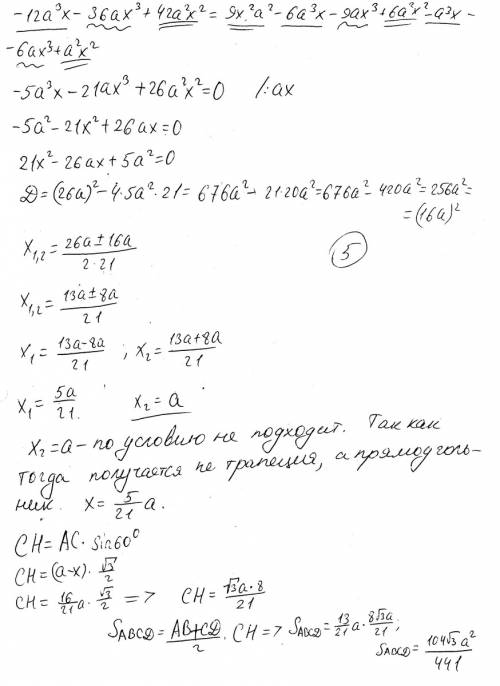 -12a³x - 36ax³ + 42a²x² = 9x²a² - 6a³x - 9ax³ + 6a²x² - a³x -
- 6ax³ + a²x²
-5a³x - 21ax³ + 26a²x² = 0 /: ax
-5a² - 21x² + 26ax = 0
21x² - 26ax + 5a² = 0
D = (26a)² - 4·5a²·21 = 676a² - 21·20a² = 676a² - 420a² = 256a² =
= (16a)²
x₁,₂ = (26a ± 16a)/(2·21)
5
x₁,₂ = (13a ± 8a)/21
x₁ = (13a - 8a)/21 ; x₂ = (13a + 8a)/21
x₁ = 5a/21 x₂ = a
x₂ = a - по условию не подходит. Так как
тогда получается не трапеция, а прямоуголь-
ник. x = 5/21 a.
CH = AC · sin60⁰
CH = (a-x) · √3/2
CH = 16/21 a · √3/2 => CH = √3a·8/21
SABCD = (AB+CD)/2 · CH => SABCD = 13/21 a · 8√3a/21 ;
SABCD = 104√3 a²/441